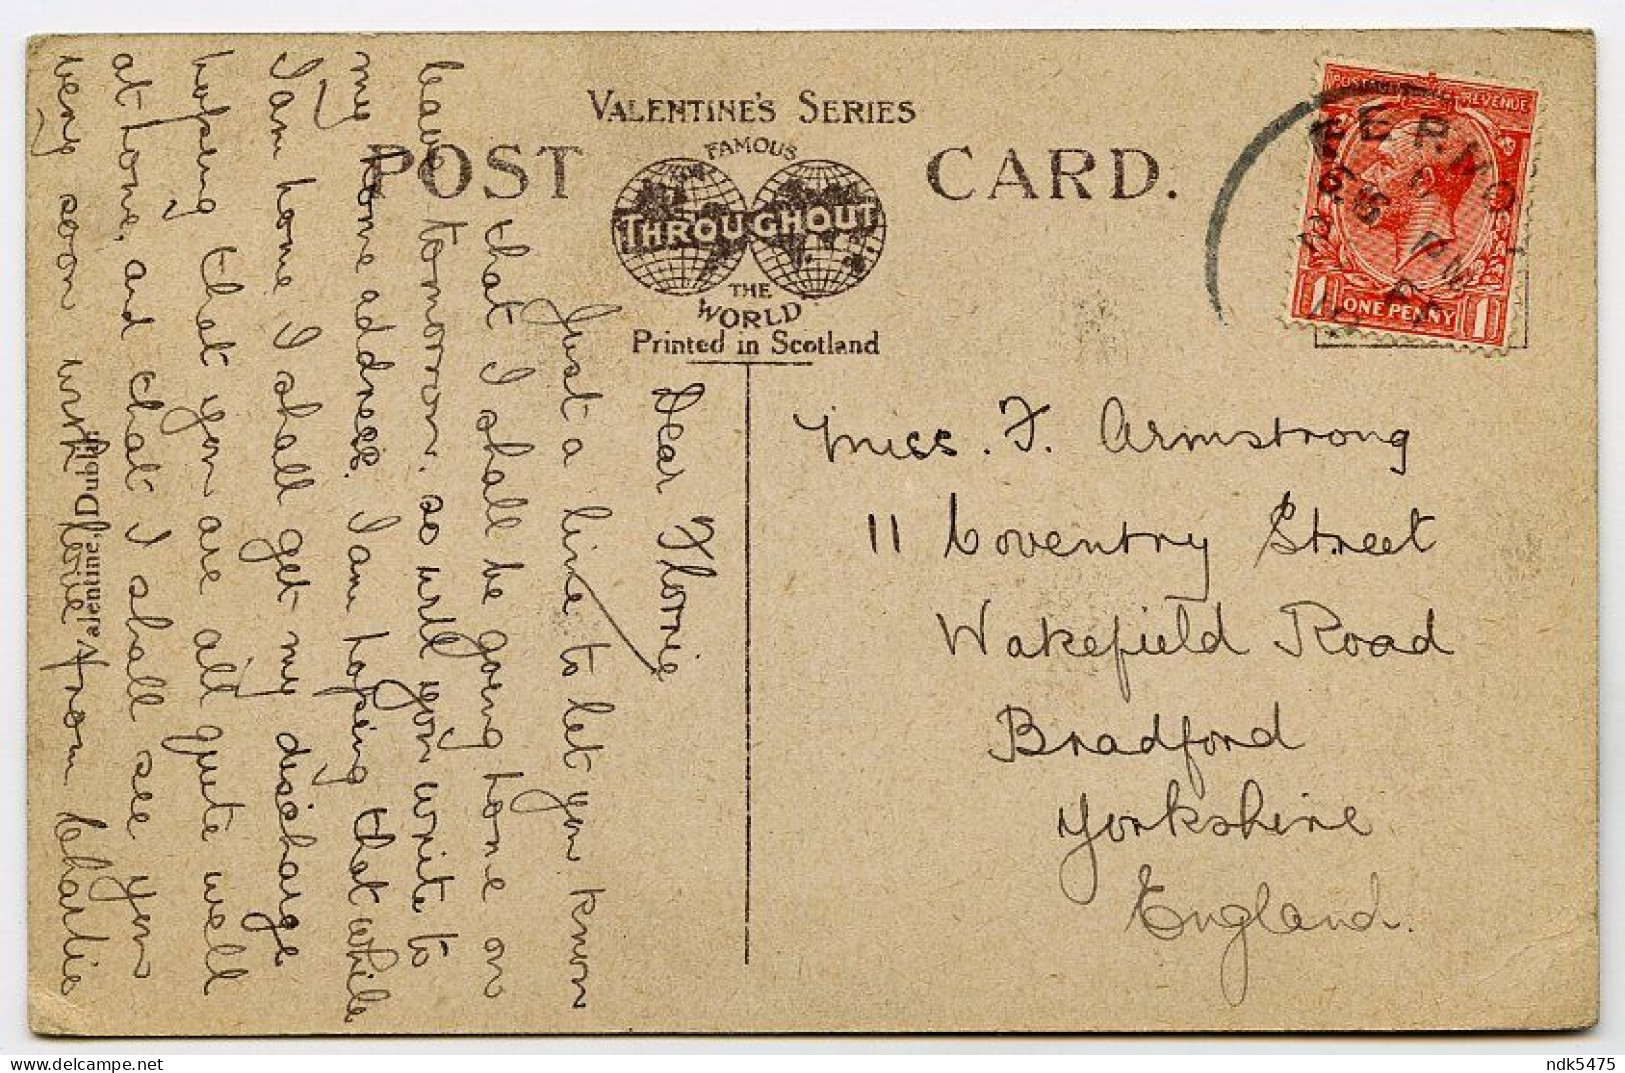 VALENTINE'S SERIES
POST CARD.
FAMOUS
THROUGHOUT
THE
WORLD
Printed in Scotland
Valentine, Dublin.
POSTAGE REVENUE
ONE PENNY
1 1
FERMOY
Dear Florrie
Just a line to let you know
that I shall be going home on
leave tomorrow. so will you write to
my home address. I am hoping that while
I am home I shall get my discharge
hoping that you are all quite well
at home, and that I shall see you
very soon with love from Charlie
Miss. F. Armstrong
11 Coventry Street
Wakefield Road
Bradford
Yorkshire
England.
ndk5475